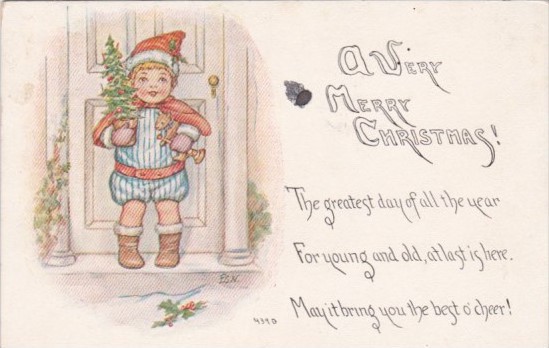 A Very
Merry
Christmas!
The greatest day of all the year
For young and old, at last is here.
May it bring you the best o' cheer!
439D